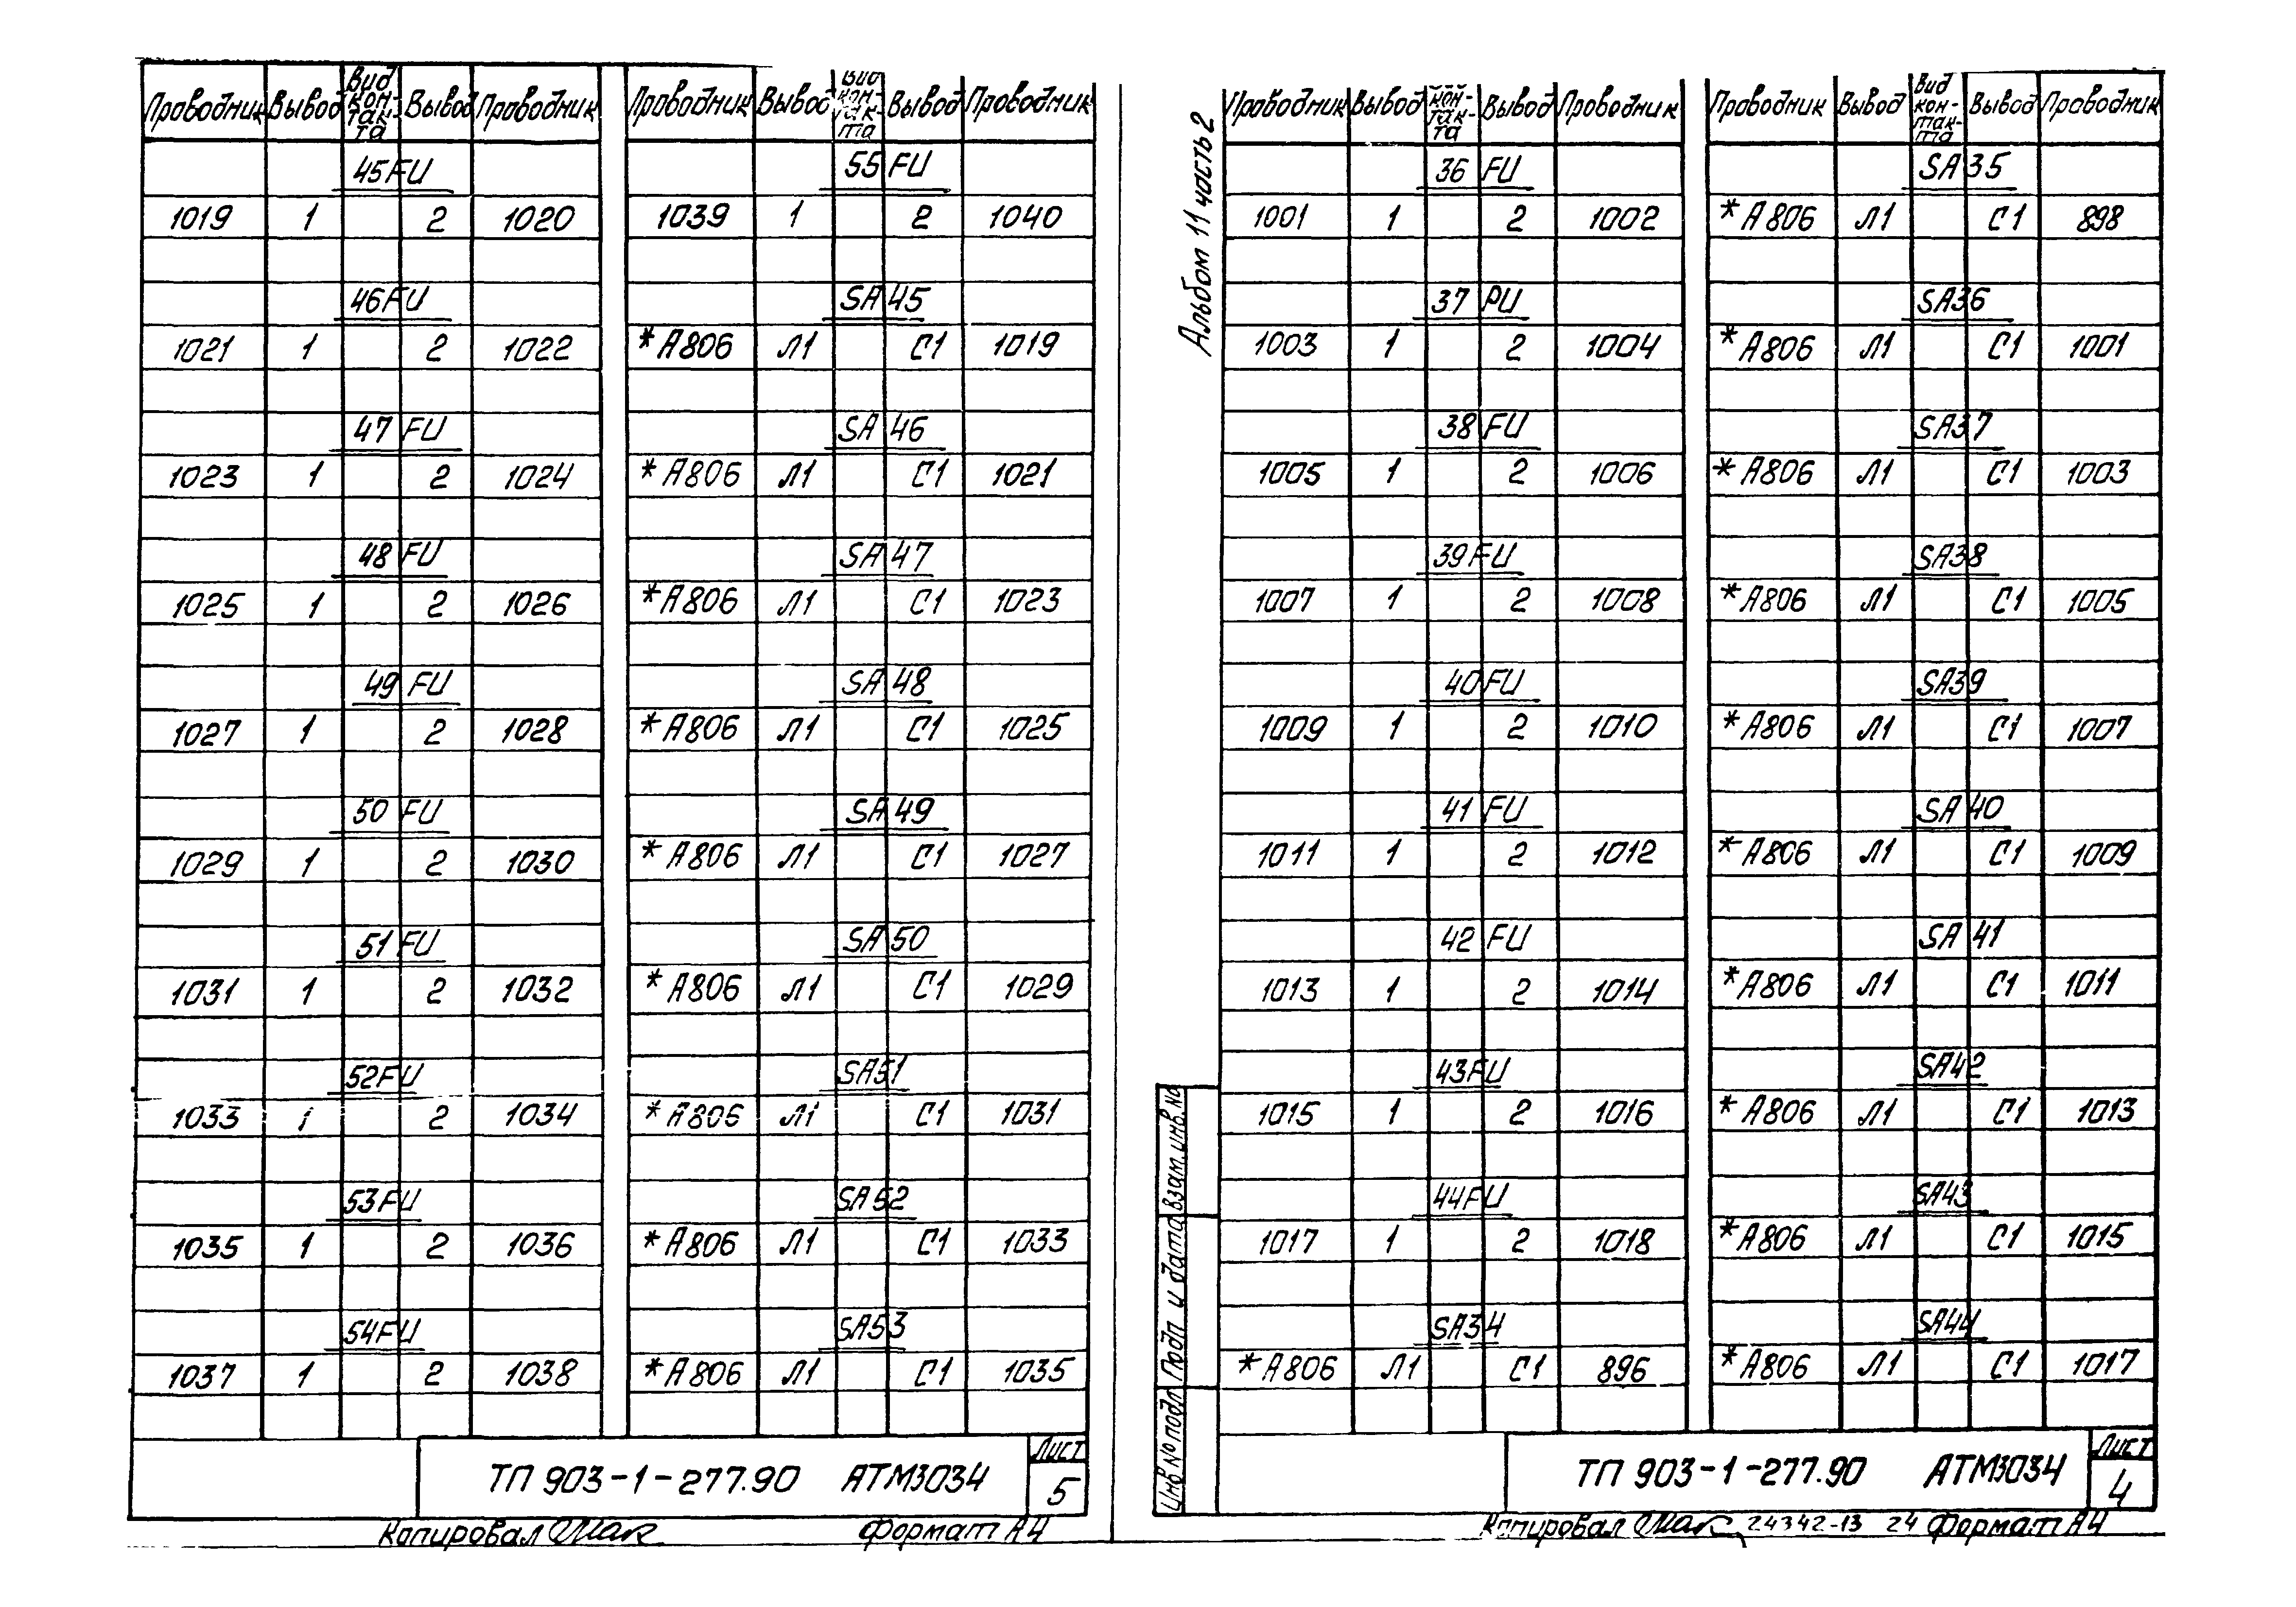 Проводник Вывод Вид кон-так-та Вывод Проводник
45FU
1019 1 2 1020
46FU
1021 1 2 1022
47 FU
1023 1 2 1024
48 FU
1025 1 2 1026
49 FU
1027 1 2 1028
50 FU
1029 1 2 1030
51 FU
1031 1 2 1032
52FU
1033 1 2 1034
53FU
1035 1 2 1036
54FU
1037 1 2 1038
Проводник Вывод Вид кон-так-та Вывод Проводник
55 FU
1039 1 2 1040
SA 45
*А806 Л1 С1 1019
SA 46
*А806 Л1 С1 1021
SA 47
*А806 Л1 С1 1023
SA 48
*А806 Л1 С1 1025
SA 49
*А806 Л1 С1 1027
SA 50
*А806 Л1 С1 1029
SA51
*А806 Л1 С1 1031
SA52
*А806 Л1 С1 1033
SA53
*А806 Л1 С1 1035
ТП 903-1-277.90 АТМ3034
Лист
5
Копировал Формат А4
Альбом 11 часть 2
Проводник Вывод кон-так-та Вывод Проводник
36 FU
1001 1 2 1002
37 PU
1003 1 2 1004
38 FU
1005 1 2 1006
39FU
1007 1 2 1008
40FU
1009 1 2 1010
41 FU
1011 1 2 1012
42 FU
1013 1 2 1014
43FU
1015 1 2 1016
44FU
1017 1 2 1018
SA34
*А806 Л1 С1 896
Проводник Вывод Вид кон-так-та Вывод Проводник
SA35
*А806 Л1 С1 898
SA36
*А806 Л1 С1 1001
SA37
*А806 Л1 С1 1003
SA38
*А806 Л1 С1 1005
SA39
*А806 Л1 С1 1007
SA 40
*А806 Л1 С1 1009
SA 41
*А806 Л1 С1 1011
SA42
*А806 Л1 С1 1013
SA43
*А806 Л1 С1 1015
SA44
*А806 Л1 С1 1017
Взам.инв.№
Подп и дата
Инв № подл
ТП 903-1-277.90 АТМ3034
Лист
4
Копировал 24342-13 24 Формат А4